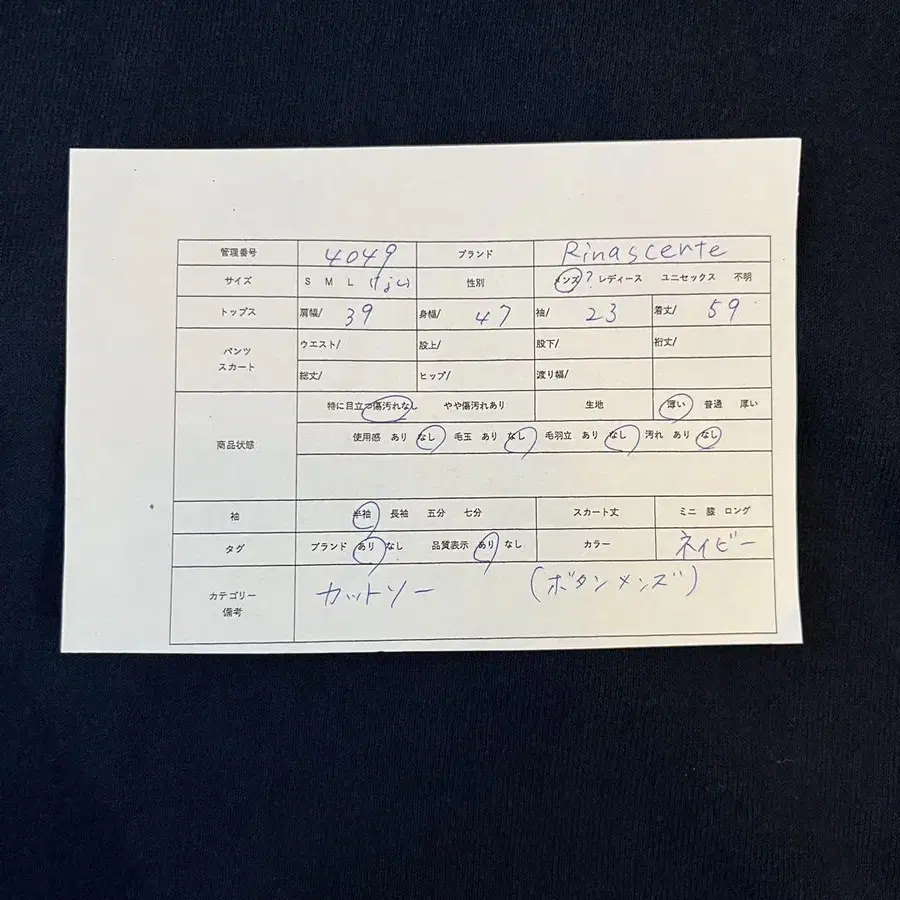 管理番号 4049 ブランド Rinascente
サイズ S M L 性別 メンズ? レディース ユニセックス 不明
トップス 肩幅/ 39 身幅/ 47 袖/ 23 着丈/ 59
パンツ スカート ウエスト/ 股上/ 股下/ 裄丈/
総丈/ ヒップ/ 渡り幅/
商品状態 特に目立つ傷汚れなし やや傷汚れあり 生地 薄い 普通 厚い
使用感 あり なし 毛玉 あり なし 毛羽立 あり なし 汚れ あり なし
袖 半袖 長袖 五分 七分 スカート丈 ミニ 膝 ロング
タグ ブランド あり なし 品質表示 あり なし カラー ネイビー
カテゴリー 備考 カットソー (ボタンメンズ)